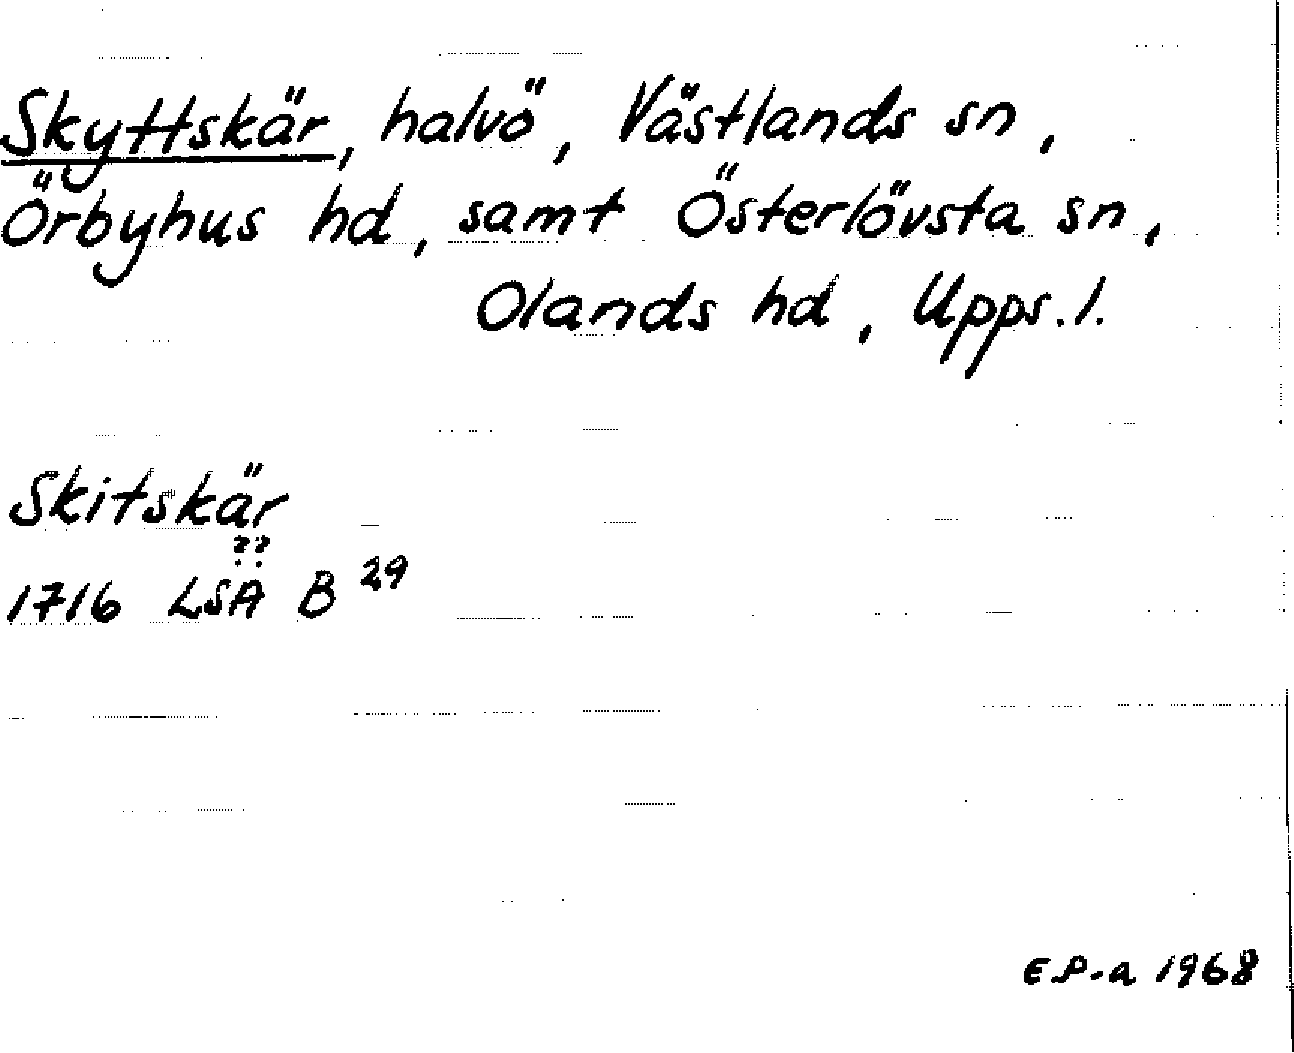 Skyttskär, halvö, Västlands sn,
Örbyhus hd, samt Österlövsta sn,
Olands hd, Upps. l.
Skitskär
??
1716 LSÄ B 29
E.P-a 1968